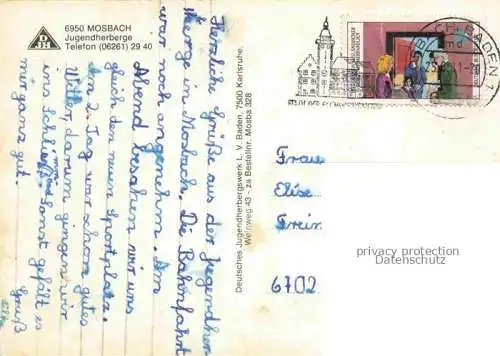 6950 MOSBACH
Jugendherberge
Telefon (06261) 29 40
DJH
Herzliche Grüße aus der Jugendher-
berge in Mosbach. Die Bahnfahrt
war noch angenehm. Am
Abend besahen wir uns
gleich den neuen Sportplatz.
Am 2. Tag war schon gutes
Wetter, darum gingen wir
ins Sonst gefällt es
mir ganz gut.
Gruß
Deutsches Jugendherbergswerk L. V. Baden, 7500 Karlsruhe.
Weinweg 43 - za Bestellnr. Mosba 328
BADEN
Frau
Elise
Frein
6702
privacy protection
Datenschutz